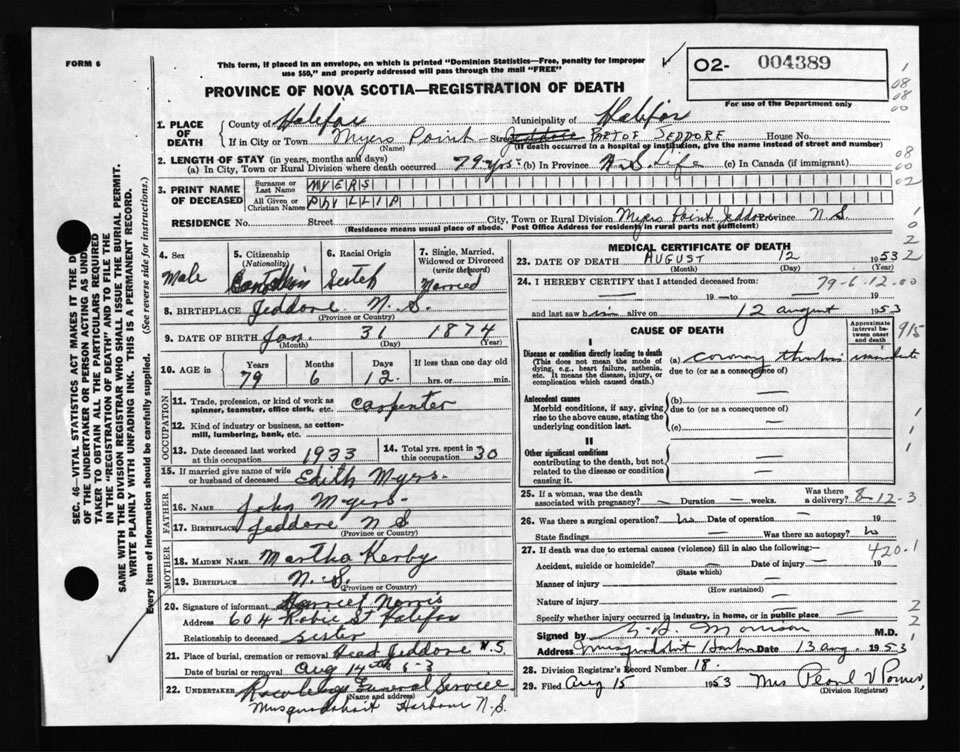 FORM 6
This form, if placed in an envelope, on which is printed "Dominion Statistics—Free, penalty for improper
use $50," and properly addressed will pass through the mail "FREE"
PROVINCE OF NOVA SCOTIA—REGISTRATION OF DEATH
O2- 004389
For use of the Department only
1. PLACE OF DEATH
County of Halifax Municipality of Halifax
If in City or Town Myers Point Street Jeddore PART OF JEDDORE House No.
(Name) (If death occurred in a hospital or institution, give the name instead of street and number)
2. LENGTH OF STAY (in years, months and days)
(a) In City, Town or Rural Division where death occurred 79 yrs (b) In Province N.S. Life (c) In Canada (if immigrant)
3. PRINT NAME OF DECEASED
Surname or Last Name MYERS
All Given or Christian Names PHILLIP
RESIDENCE No. Street City, Town or Rural Division Myers Point Jeddore Province N.S.
(Residence means usual place of abode. Post Office Address for residents in rural parts not sufficient)
4. Sex Male
5. Citizenship (Nationality) Canadian
6. Racial Origin
7. Single, Married, Widowed or Divorced (write the word) Married
8. BIRTHPLACE Jeddore N. S.
(Province or Country)
9. DATE OF BIRTH Jan. 31 1874
(Month) (Day) (Year)
10. AGE in Years 79 Months 6 Days 12 If less than one day old hrs. or min.
OCCUPATION
11. Trade, profession, or kind of work as spinner, teamster, office clerk, etc. Carpenter
12. Kind of industry or business, as cotton-mill, lumbering, bank, etc.
13. Date deceased last worked at this occupation 1933
14. Total yrs. spent in this occupation 30
15. If married give name of wife or husband of deceased Edith Myers.
FATHER
16. NAME John Myers.
17. BIRTHPLACE Jeddore N S
(Province or Country)
MOTHER
18. MAIDEN NAME Martha Kerby
19. BIRTHPLACE N. S.
(Province or Country)
20. Signature of informant Harriet Norris
Address 604 Robie St Halifax
Relationship to deceased Sister
21. Place of burial, cremation or removal Head Jeddore N.S.
Date of burial or removal Aug 14th 53
22. UNDERTAKER Funeral Service
(Name and address)
Musquodoboit Harbour N.S.
MEDICAL CERTIFICATE OF DEATH
23. DATE OF DEATH AUGUST 12 1953
(Month) (Day) (Year)
24. I HEREBY CERTIFY that I attended deceased from: 79-6-12-00
— 19 — to — 19
and last saw him alive on 12 August 1953
CAUSE OF DEATH
Approximate interval between onset and death
I
Disease or condition directly leading to death
(This does not mean the mode of dying, e.g., heart failure, asthenia, etc. It means the disease, injury, or complication which caused death.)
(a) coronary thrombosis
due to (or as a consequence of)
Antecedent causes
Morbid conditions, if any, giving rise to the above cause, stating the underlying condition last.
(b) —
due to (or as a consequence of)
(c) —
II
Other significant conditions
contributing to the death, but not related to the disease or condition causing it.
25. If a woman, was the death associated with pregnancy? — Duration — weeks. Was there a delivery? 8-12-3
26. Was there a surgical operation? No Date of operation — 19
State findings — Was there an autopsy? No
27. If death was due to external causes (violence) fill in also the following:— 420.1
Accident, suicide or homicide? — Date of injury — 19
(State which)
Manner of injury —
(How sustained)
Nature of injury —
Specify whether injury occurred in industry, in home, or in public place —
Signed by Morrison M.D.
Address Musquodoboit Harbour Date 13 Aug. 1953
28. Division Registrar's Record Number 18.
29. Filed Aug 15 1953 Mrs Pearl V
(Division Registrar)
SEC. 46—VITAL STATISTICS ACT MAKES IT THE DUTY
OF THE UNDERTAKER OR PERSON ACTING AS UNDERTAKER
TAKER TO OBTAIN ALL THE PARTICULARS REQUIRED
IN THE "REGISTRATION OF DEATH" AND TO FILE THE
SAME WITH THE DIVISION REGISTRAR WHO SHALL ISSUE THE BURIAL PERMIT.
WRITE PLAINLY WITH UNFADING INK. THIS IS A PERMANENT RECORD.
Every item of information should be carefully supplied. (See reverse side for instructions.)